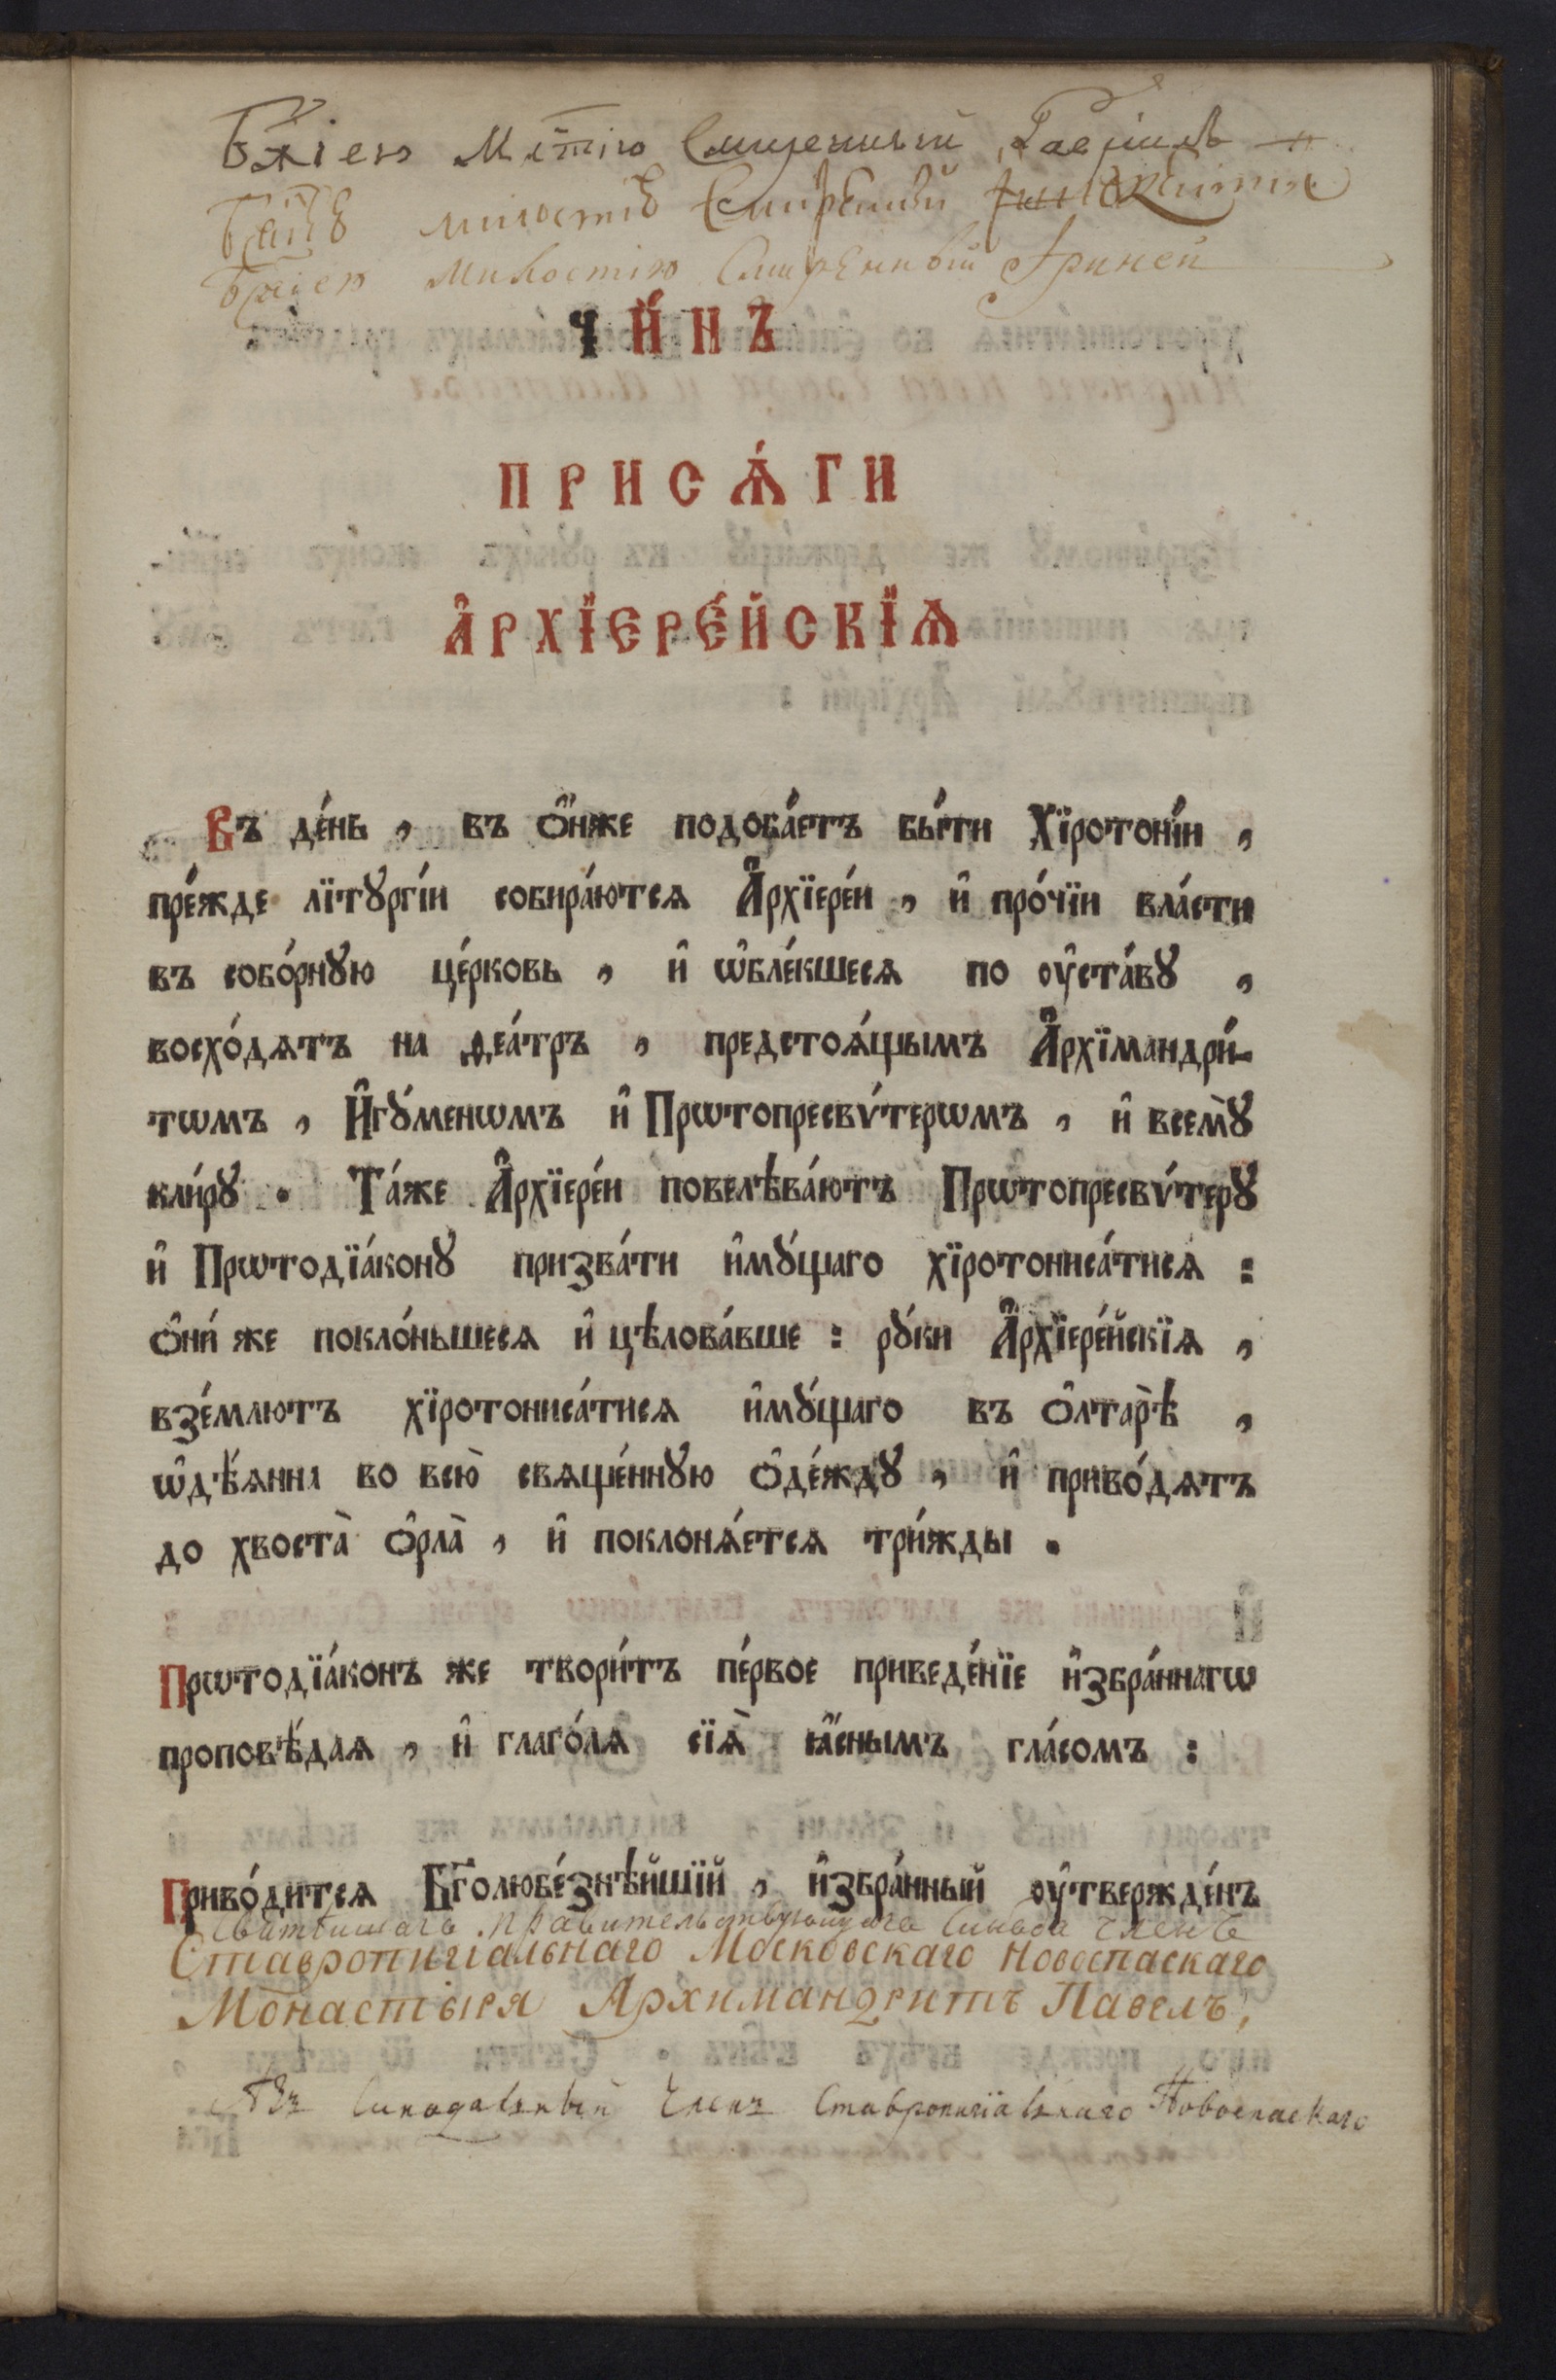 Бжіею Мстїю Смиренный Гавріилъ
милостїю Смиренный Иннокентїи
Бжіею милостію Смиренный Ириней
ЧИ́НЪ
ПРИСѦ́ГИ
А҆РХЇЕРЕ́ЙСКЇѦ
Въ де́нь , въ ѻ҆́ньже подоба́етъ бы́ти Хїротонїи ,
пре́жде лїтꙋргі́и собира́ютсѧ А҆рхїере́и , и҆ про́чїи вла́сти
въ собо́рнꙋю це́рковь , и҆ ѡ҆бле́кшесѧ по ᲂу҆ста́вꙋ ,
восхо́дѧтъ на ѳеа́тръ , предстоѧ́щымъ А҆рхїмандрі́-
тѡмъ , И҆гꙋ́менѡмъ и҆ Прѡтопресвѵ́терѡмъ , и҆ всемꙋ̀
кли́рꙋ . Та́же А҆рхїере́и повелѣва́ютъ Прѡтопресвѵ́терꙋ
и҆ Прѡтодїа́конꙋ призва́ти и҆мꙋ́щаго хїротониса́тисѧ :
ѻ҆ни́ же покло́ньшесѧ и҆ цѣлова́вше : рꙋ́ки А҆рхїере́йскїѧ ,
взе́млютъ хїротониса́тисѧ и҆мꙋ́щаго въ ѻ҆лтарѣ̀ ,
ѡ҆дѣ́ѧнна во всю̀ свѧще́ннꙋю ѻ҆де́ждꙋ , и҆ приво́дѧтъ
до хвоста̀ ѻ҆рла̀ , и҆ поклонѧ́етсѧ три́жды .
Прѡтодїа́конъ же твори́тъ пе́рвое приведе́нїе и҆збра́ннагѡ
проповѣ́даѧ , и҆ глаго́лѧ сїѧ̀ ꙗ҆́снымъ гла́сомъ :
Приво́дитсѧ Бг҃олюбе́знѣйшїй , и҆збра́нный ᲂу҆твержде́нъ
Святѣйшаго Правительствующаго Синода членъ
Ставропигіальнаго Московскаго Новоспаскаго
Монастыря Архимандритъ Павелъ,
Азъ Синодальный Членъ Ставропигіальнаго Новоспаскаго